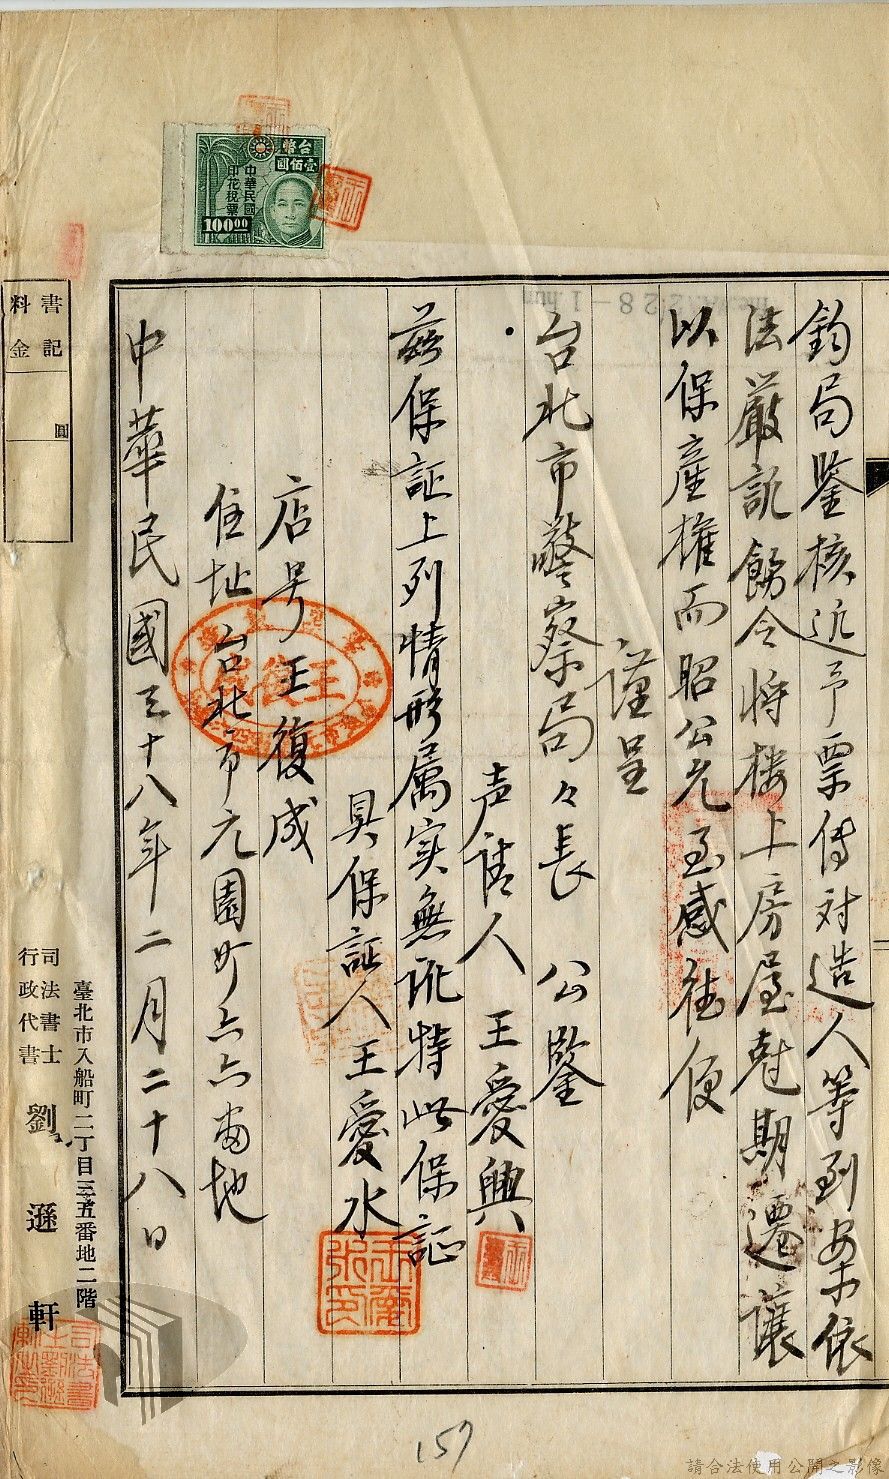 鈞局鑒核迅予票傳対造人等到案依
法嚴訊飭令将楼上房屋尅期遷讓
以保産権而昭公允至感徳便
謹呈
台北市警察局々長 公鑒
声請人 王愛興
茲保証上列情形属实無訛特此保証
具保証人 王愛水
店号 王復成
住址 台北市元園町六六番地
中華民國三十八年二月二十八日
臺北市入船町二丁目三五番地二階
司法書士
行政代書
劉遜軒
書記
料金
圓
台幣
壹佰圓
中華民國
印花稅票
100.00
王復成
157
請合法使用公開之影像